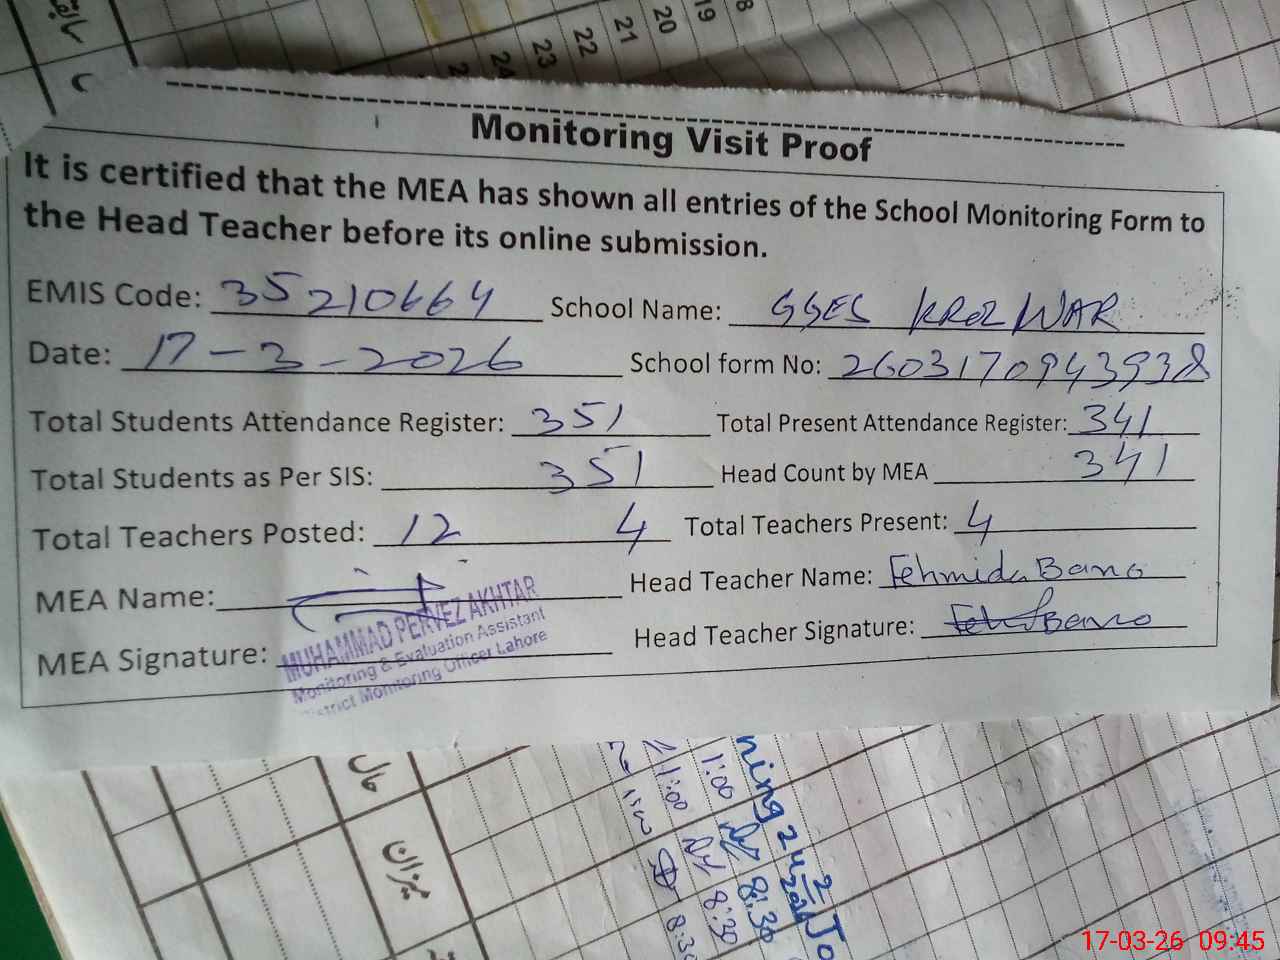 19
20
21
22
23
24
Monitoring Visit Proof
It is certified that the MEA has shown all entries of the School Monitoring Form to
the Head Teacher before its online submission.
EMIS Code: 35210664 School Name: GGES KROLWAR
Date: 17-3-2026 School form No: 260317094393 8
Total Students Attendance Register: 351 Total Present Attendance Register: 341
Total Students as Per SIS: 351 Head Count by MEA 341
Total Teachers Posted: 12 4 Total Teachers Present: 4
MEA Name: Head Teacher Name: Fehmida Bano
MUHAMMAD PERVEZ AKHTAR
MEA Signature: Head Teacher Signature:
Monitoring & Evaluation Assistant
District Monitoring Officer Lahore
حال
میزان
1:00 8:30
11:00 8:30
8:30
17-03-26 09:45